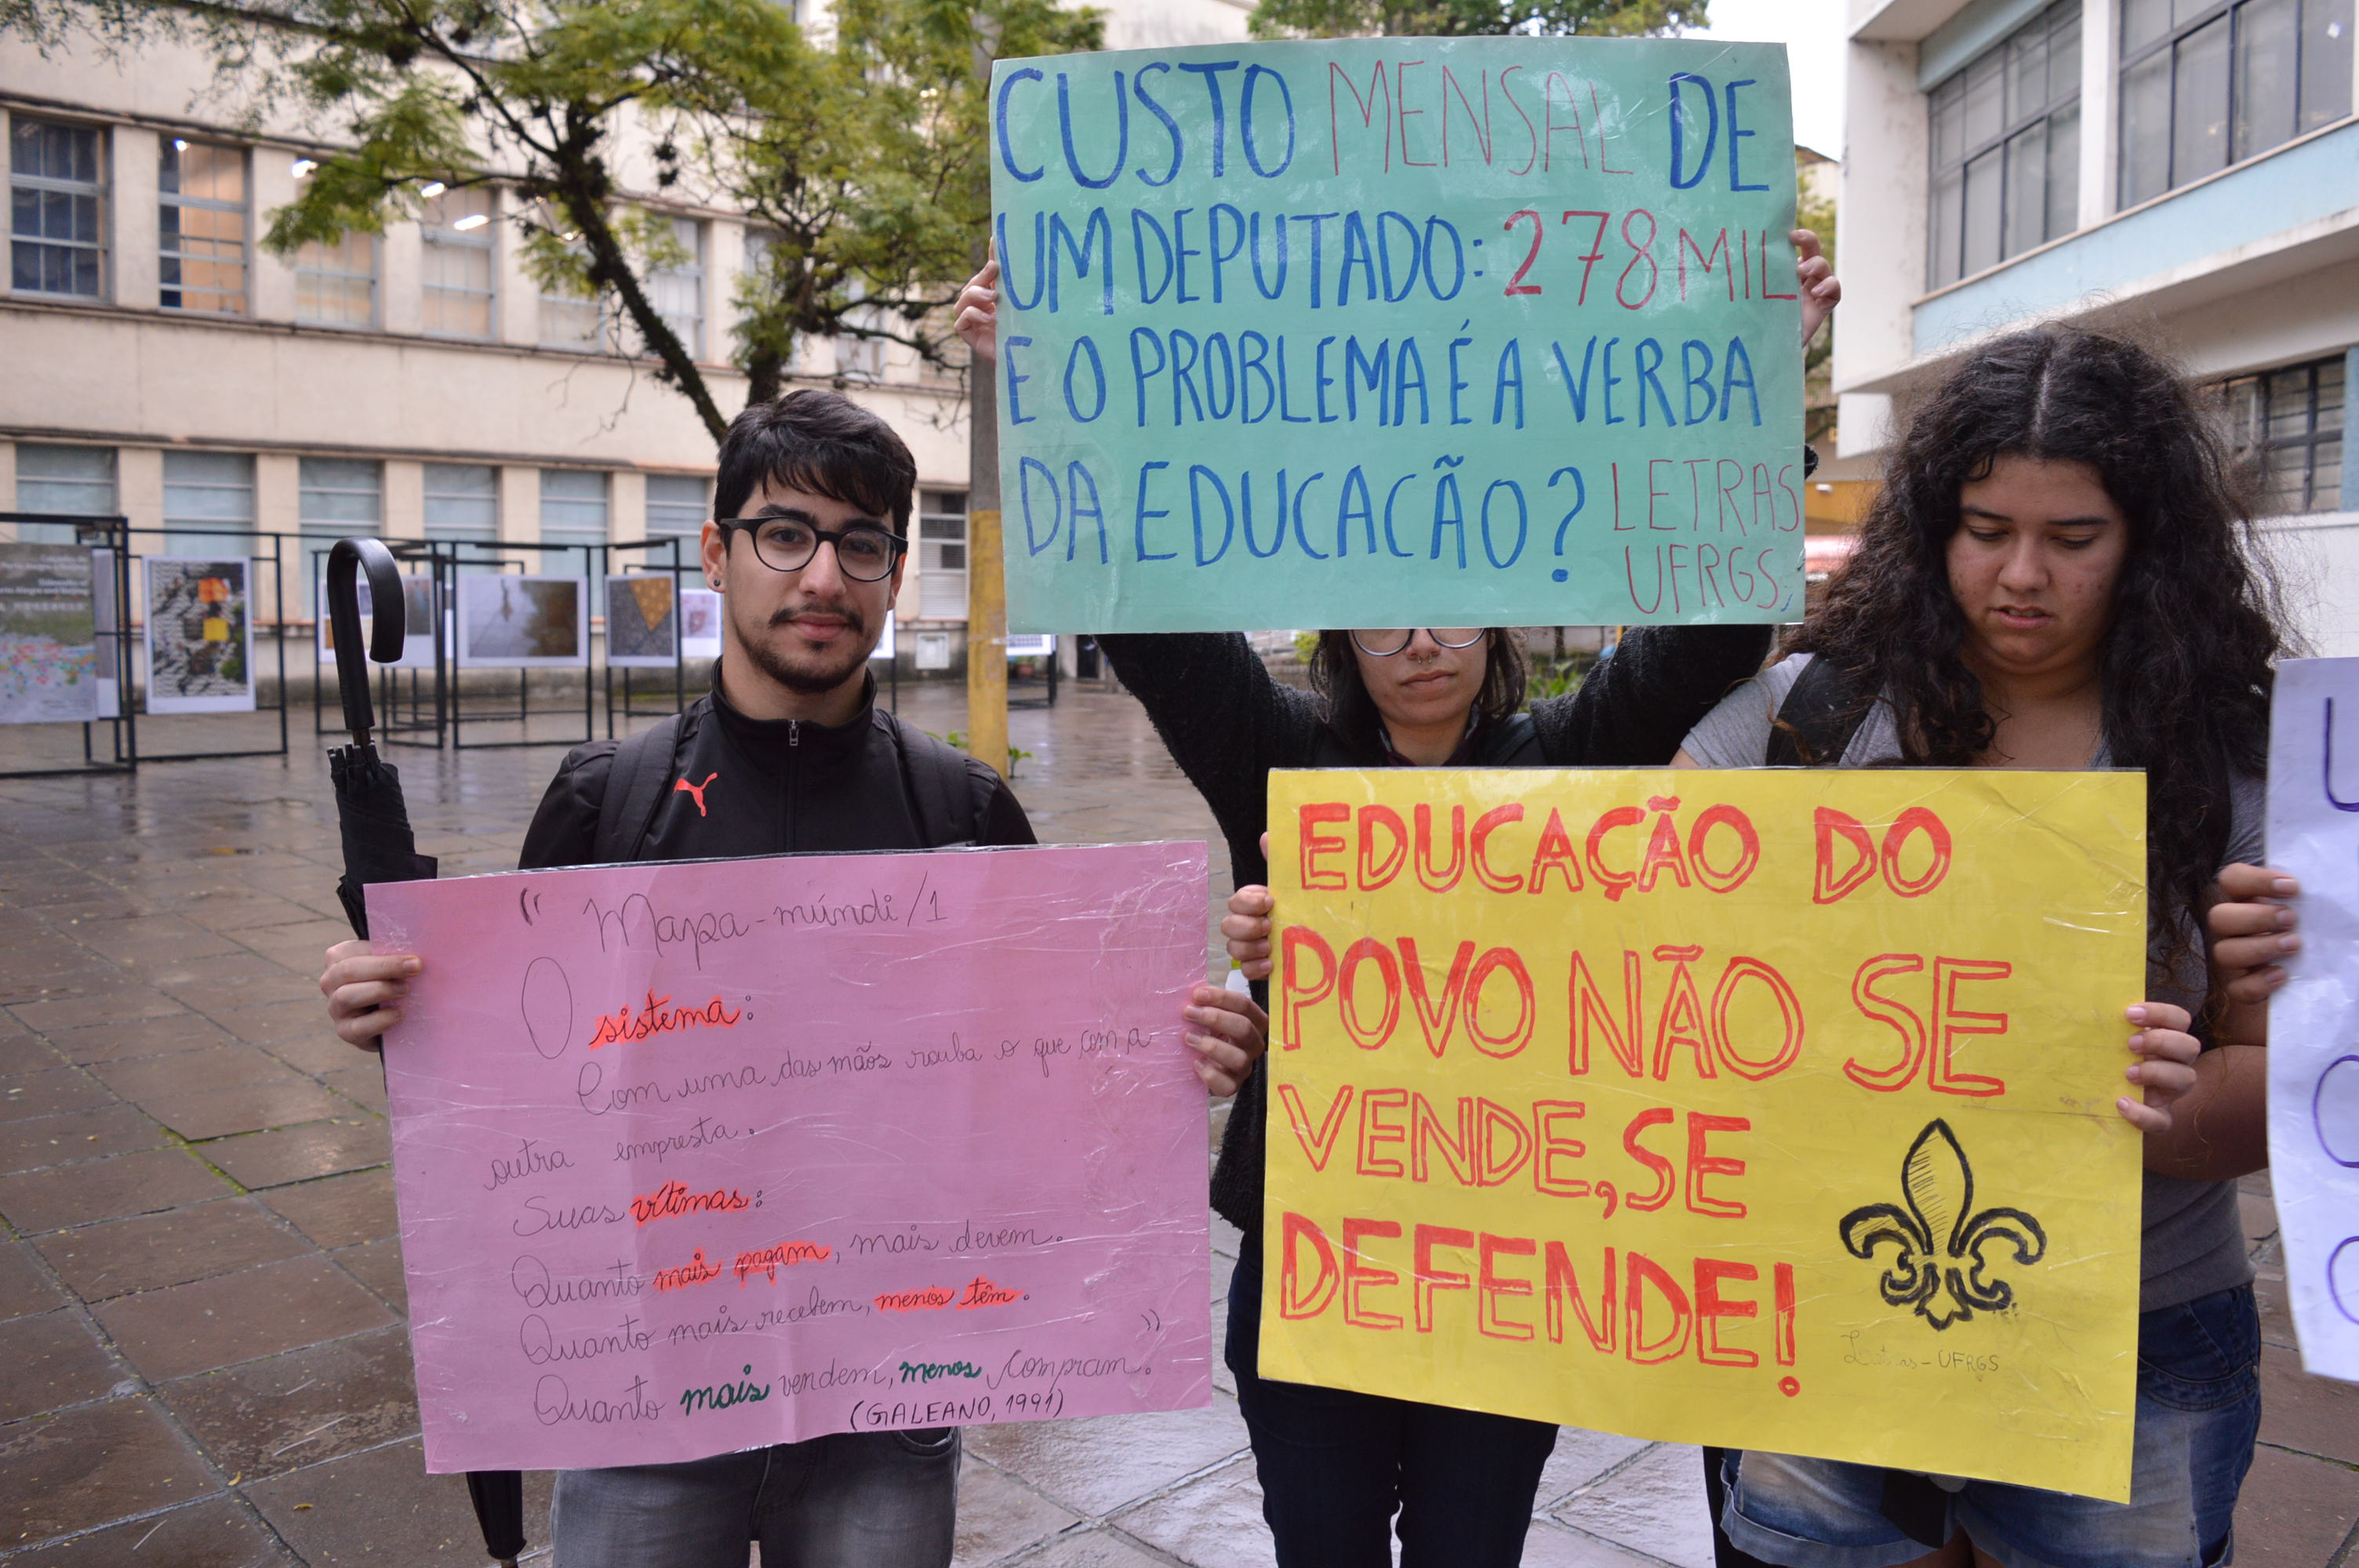 CUSTO MENSAL DE
UM DEPUTADO: 278 MIL
E O PROBLEMA É A VERBA
DA EDUCACÃO?
LETRAS
UFRGS
" Mapa-múndi/1
O sistema:
Com uma das mãos rouba o que com a
outra empresta.
Suas vítimas:
Quanto mais pagam, mais devem.
Quanto mais recebem, menos têm.
Quanto mais vendem, menos compram. "
(GALEANO, 1991)
EDUCAÇÃO DO
POVO NÃO SE
VENDE, SE
DEFENDE!
Letras-UFRGS